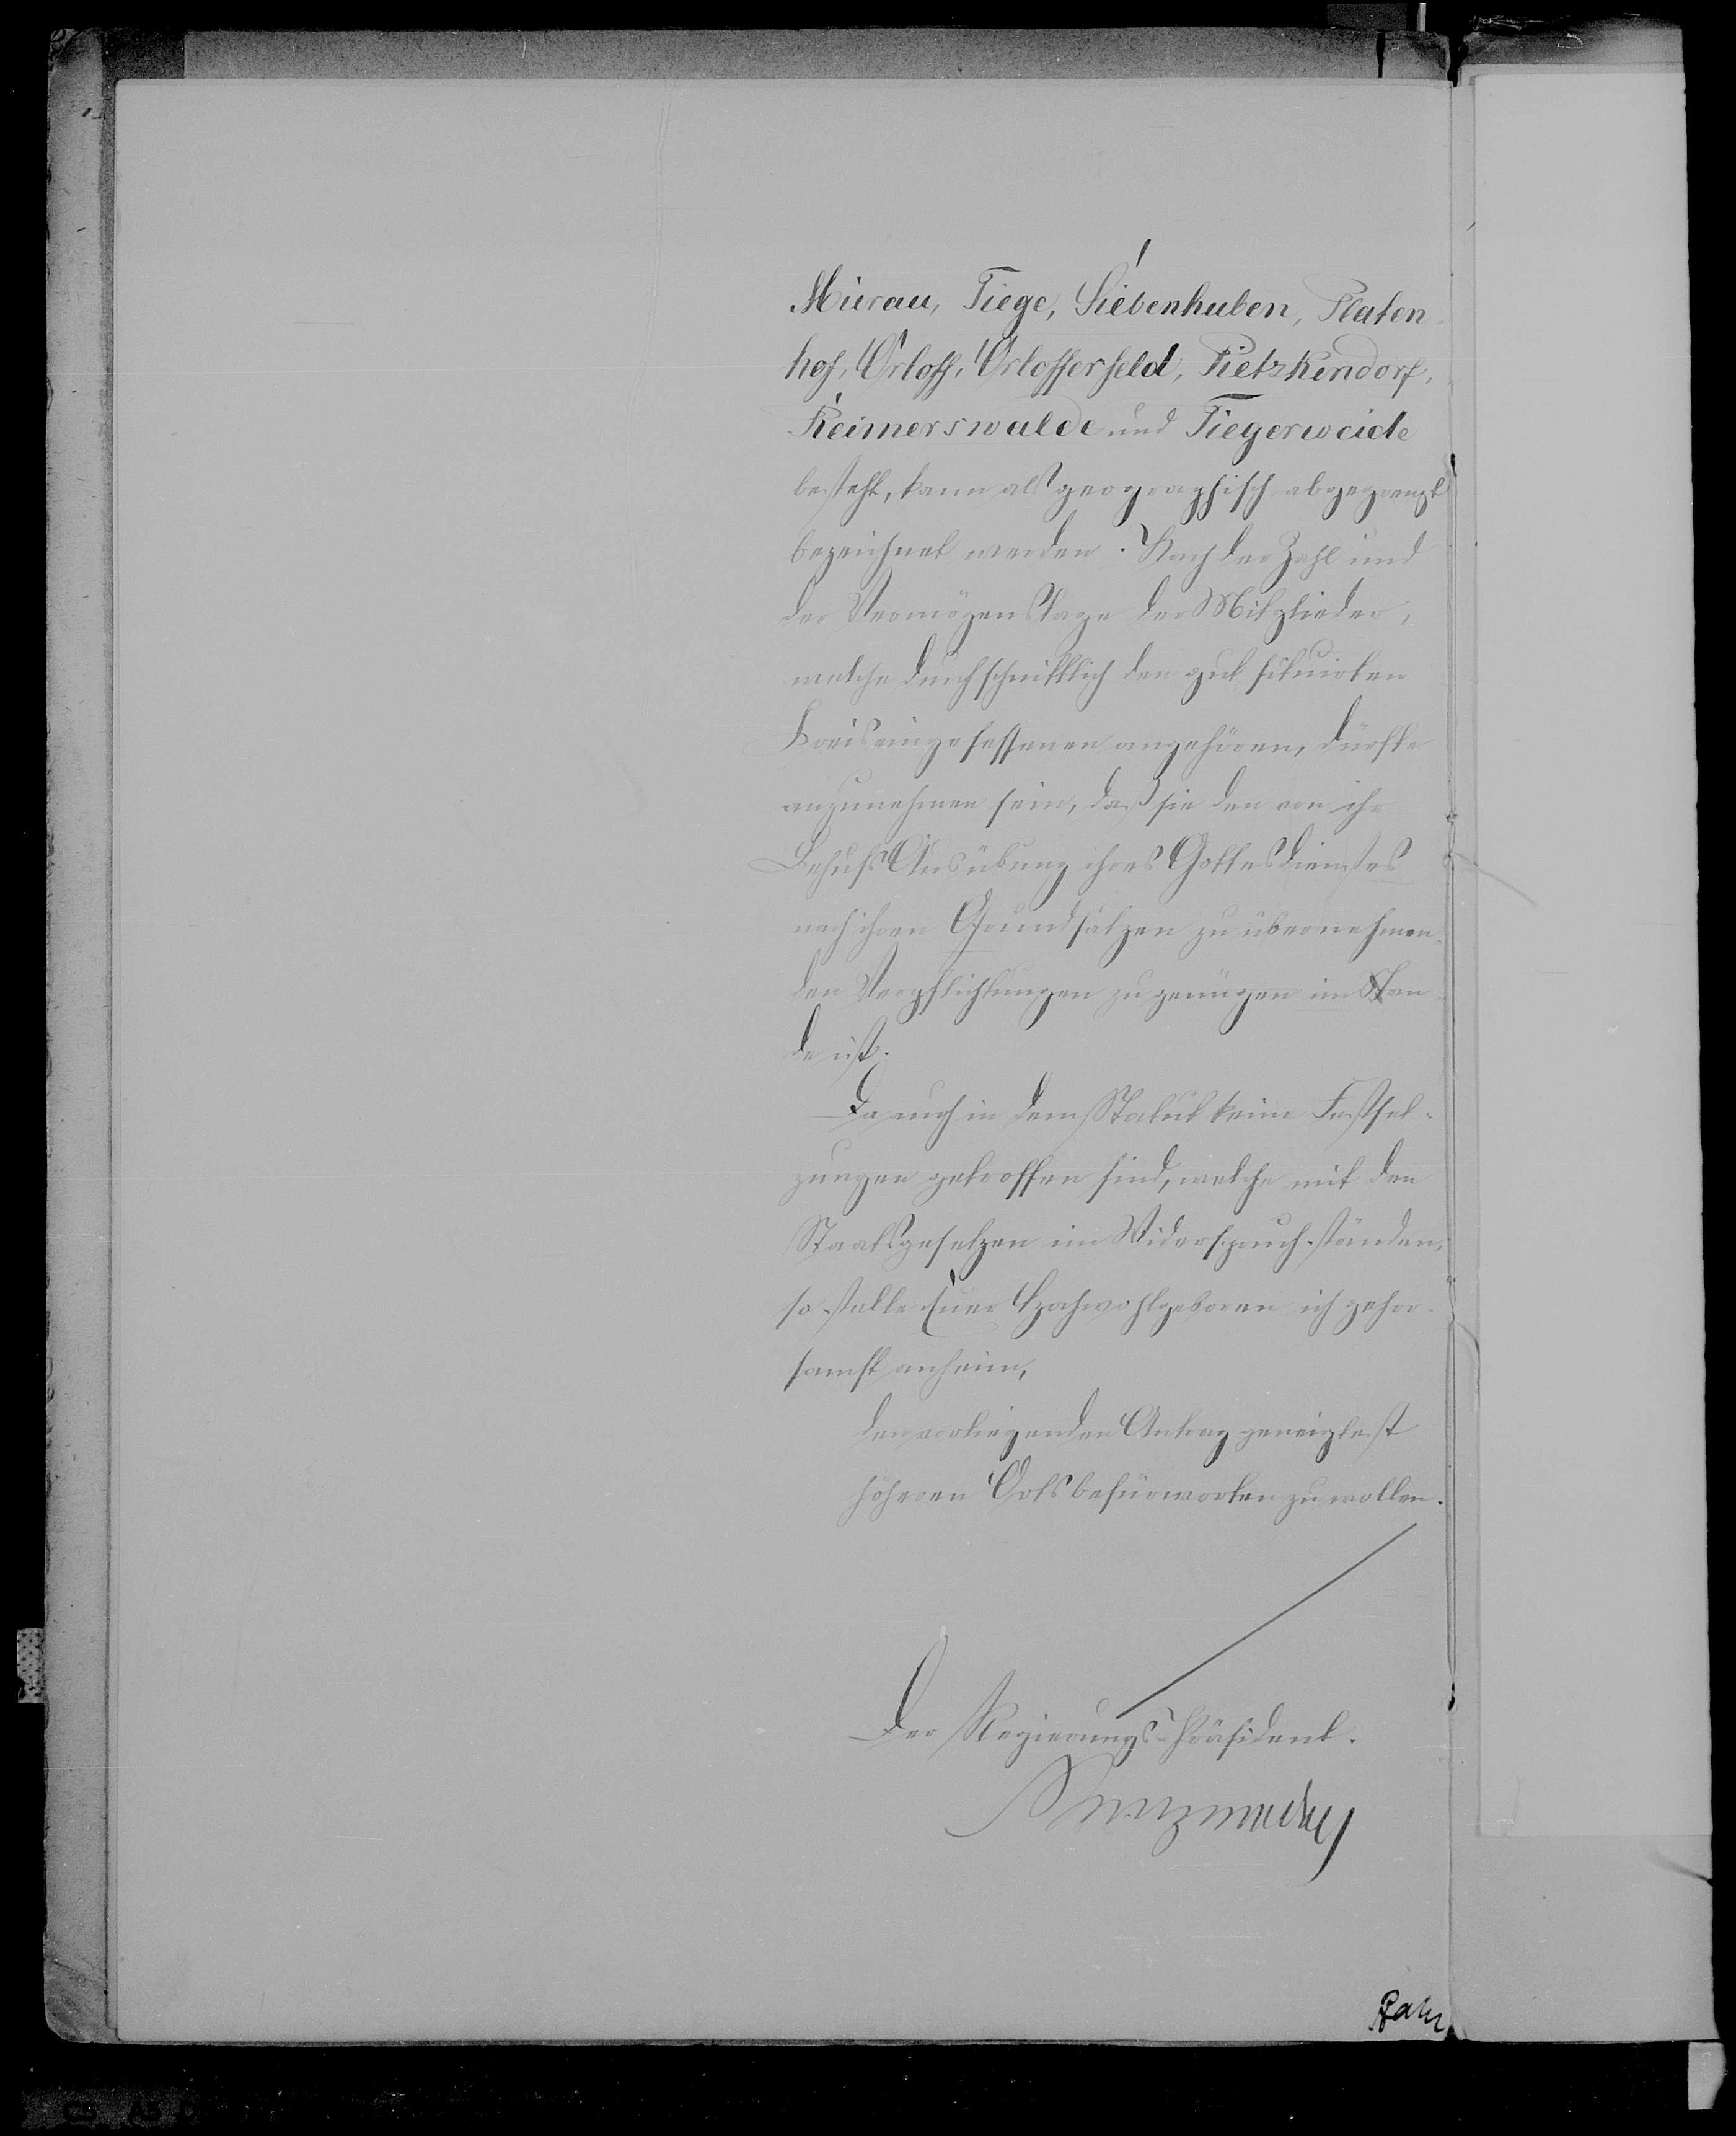 Mierau, Tiege, Siebenhuben, Platen-
hof, Orloff, Orlofferfeld, Pietzkendorf,
Reimerswalde und Tiegerweide
besteht, kann als geographisch abgegrenzt
bezeichnet werden. Nach der Zahl und
der Vermögenslage der Mitglieder,
welche durchschnittlich den gut situirten
Kreiseingesessenen angehören, dürfte
anzunehmen sein, daß sie den von ihr
Behufs Ausübung ihres Gottesdienstes
nach ihren Grundsätzen zu übernehmen-
den Verpflichtungen zu genügen im Stan-
de ist.
Da auch in dem Statut keine Festset-
zungen getroffen sind, welche mit den
Staatsgesetzen im Widerspruch ständen,
so stelle Euer Hochwohlgeboren ich gehor-
samst anheim,
den vorliegenden Antrag geneigtest
höheren Orts befürworten zu wollen.
Der Regierungs-Präsident.